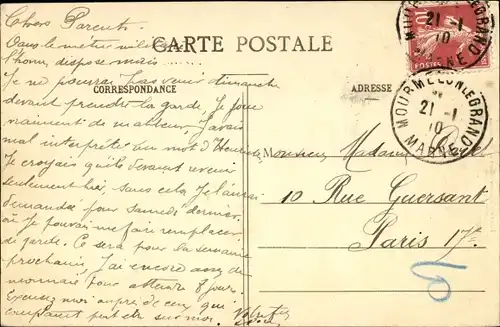 Chers Parents
Dans le métier militaire
CARTE POSTALE
l'homme dispose mais
Je ne pourrai pas venir dimanche
CORRESPONDANCE
ADRESSE
devant prendre la garde, Je joue
vraiment de malheur, J'avais
mal interprété un mot d'Henri.
Je croyais qu'ils devaient revenir
seulement hier, sans cela Je l'aurais
demandée pour samedi dernier,
où Je pouvais me faire remplacer
de garde. Ce sera pour la semaine
prochaine, J'ai encore assez de
monnaie pour attendre 8 jours.
Excusez moi auprès de ceux qui
comptaient sur moi.
Monsieur Madame
10 Rue Guersant
Paris 17e
MOURMELON-LE-GRAND
21 -1
10
MARNE
MOURMELON-LE-GRAND
21 -1
10
MARNE
10
POSTES